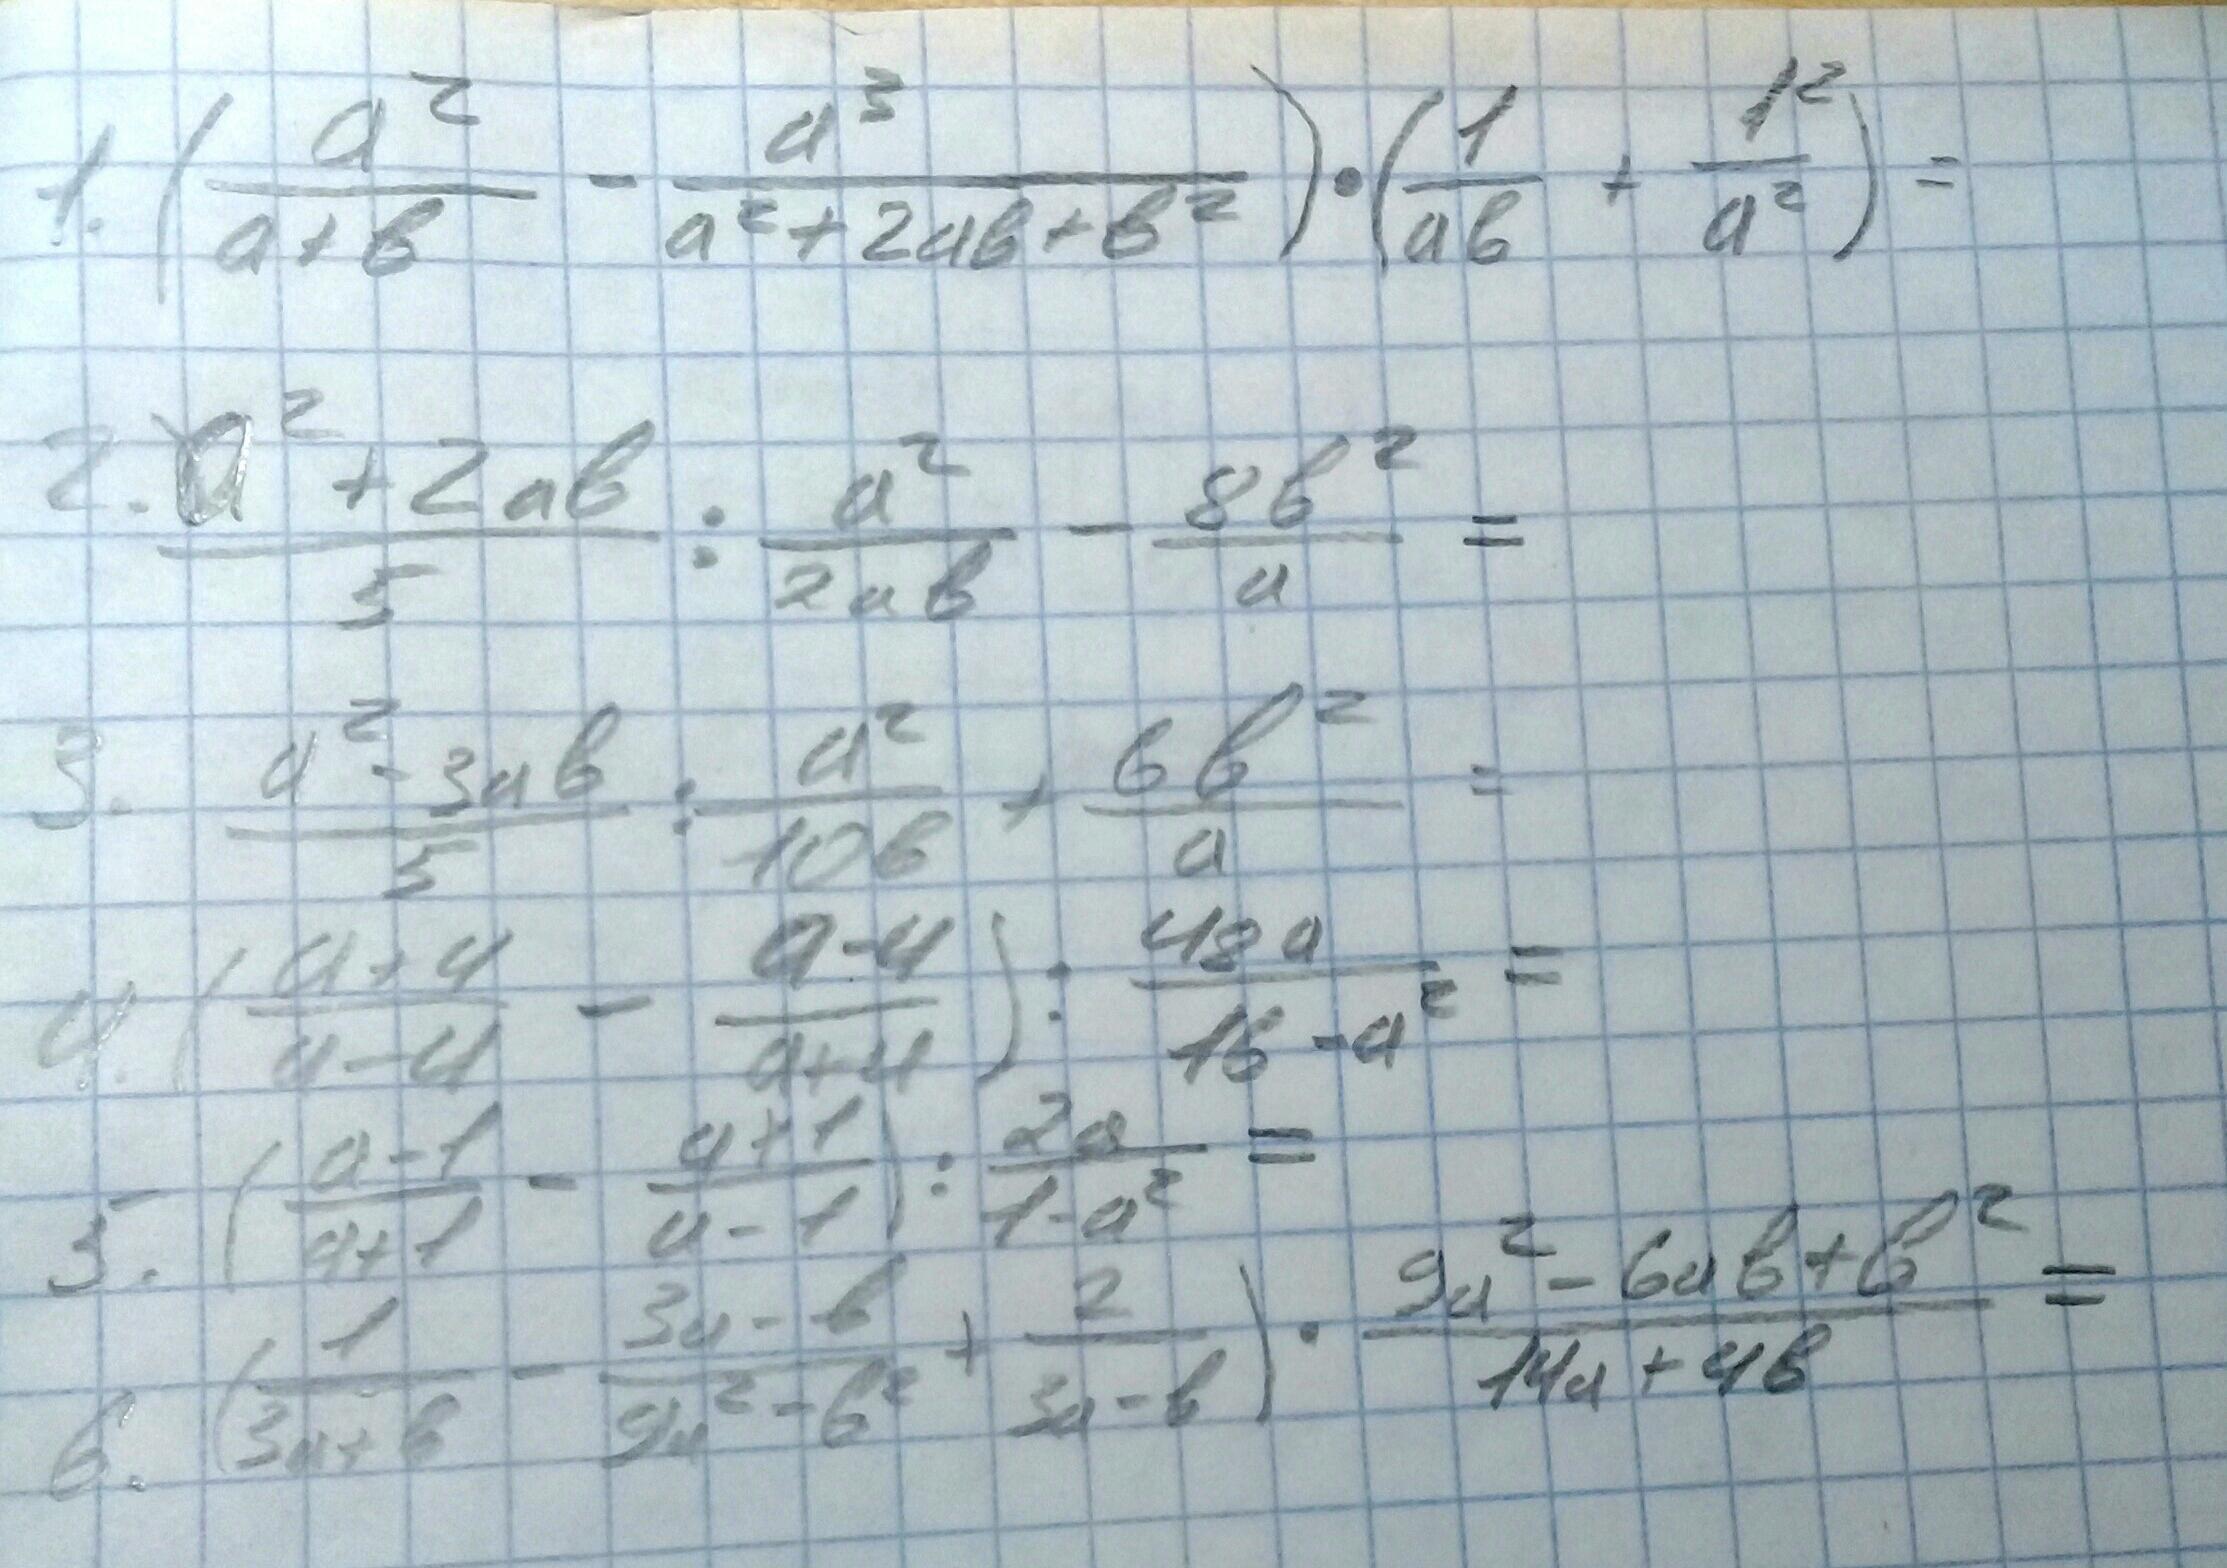 1. (a²/(a+b) - a³/(a²+2ab+b²)) · (1/(ab) + 1²/a²) =
2. (a²+2ab)/5 : a²/(2ab) - 8b²/a =
3. (a²-3ab)/5 : a²/(10b) + 6b²/a =
4. ((a+4)/(a-4) - (a-4)/(a+4)) : 48a/(16-a²) =
5. ((a-1)/(a+1) - (a+1)/(a-1)) : 2a/(1-a²) =
6. (1/(3a+b) - (3a-b)/(9a²-b²) + 2/(3a-b)) · (9a²-6ab+b²)/(14a+4b) =